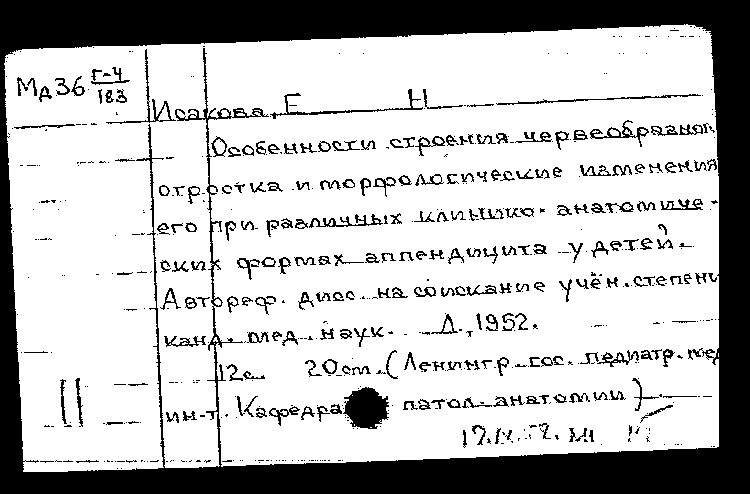 Мд36 Г-4
183
Исакова, Е Н
Особенности строения червеобразног
отростка и морфологические изменения
его при различных клинико-анатомиче-
ских формах аппендицита у детей.
Автореф. дисс. на соискание учён. степени
канд. мед. наук. Л., 1952.
12с. 20см. (Ленингр. гос. педиатр. мед
ин-т. Кафедра патол. анатомии)